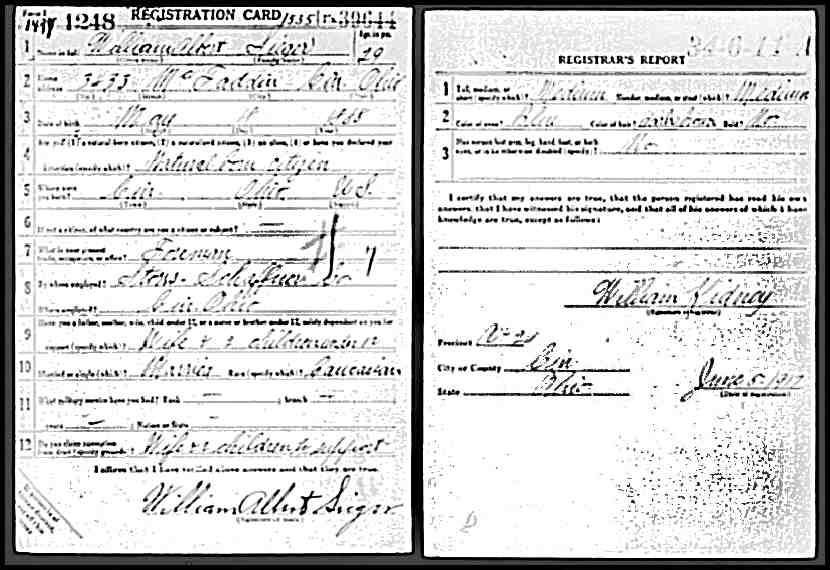 Form 1 1248 REGISTRATION CARD 1535 No. 39644
Age, in yrs.
1 Name in full William Albert Sieger 29
(Given name) (Family name)
2 Home address 3233 McFaddin Cin Ohio
(No.) (Street) (City) (State)
3 Date of birth May
(Month) (Day) (Year)
4 Are you (1) a natural born citizen, (2) a naturalized citizen, (3) an alien, (4) or have you declared your
intention (specify which)? Natural born citizen
5 Where were you born? Cin Ohio U S
(Town) (State) (Nation)
6 If not a citizen, of what country are you a citizen or subject? —
7 What is your present trade, occupation, or office? Foreman 7
8 By whom employed? Schaffner Co
Where employed? Cin Ohio
9 Have you a father, mother, wife, child under 12, or a sister or brother under 12, solely dependent on you for
support (specify which)? Wife & 2 children under 12
10 Married or single (which)? Married Race (specify which)? Caucasian
11 What military service have you had? Rank — ; branch —
years — ; Nation or State —
12 Do you claim exemption from draft (specify grounds)? Wife & children to support
I affirm that I have verified above answers and that they are true.
William Albert Sieger
(Signature or mark)
34-6-11 A
REGISTRAR'S REPORT
1 Tall, medium, or short (specify which)? Medium Slender, medium, or stout (which)? Medium
2 Color of eyes? Blue Color of hair? dark brown Bald? No
3 Has person lost arm, leg, hand, foot, or both
eyes, or is he otherwise disabled (specify)? No
I certify that my answers are true, that the person registered has read his own
answers, that I have witnessed his signature, and that all of his answers of which I have
knowledge are true, except as follows:
William Vidney
(Signature of registrar)
Precinct
City or County Cin
State Ohio
June 5-1917
(Date of registration)